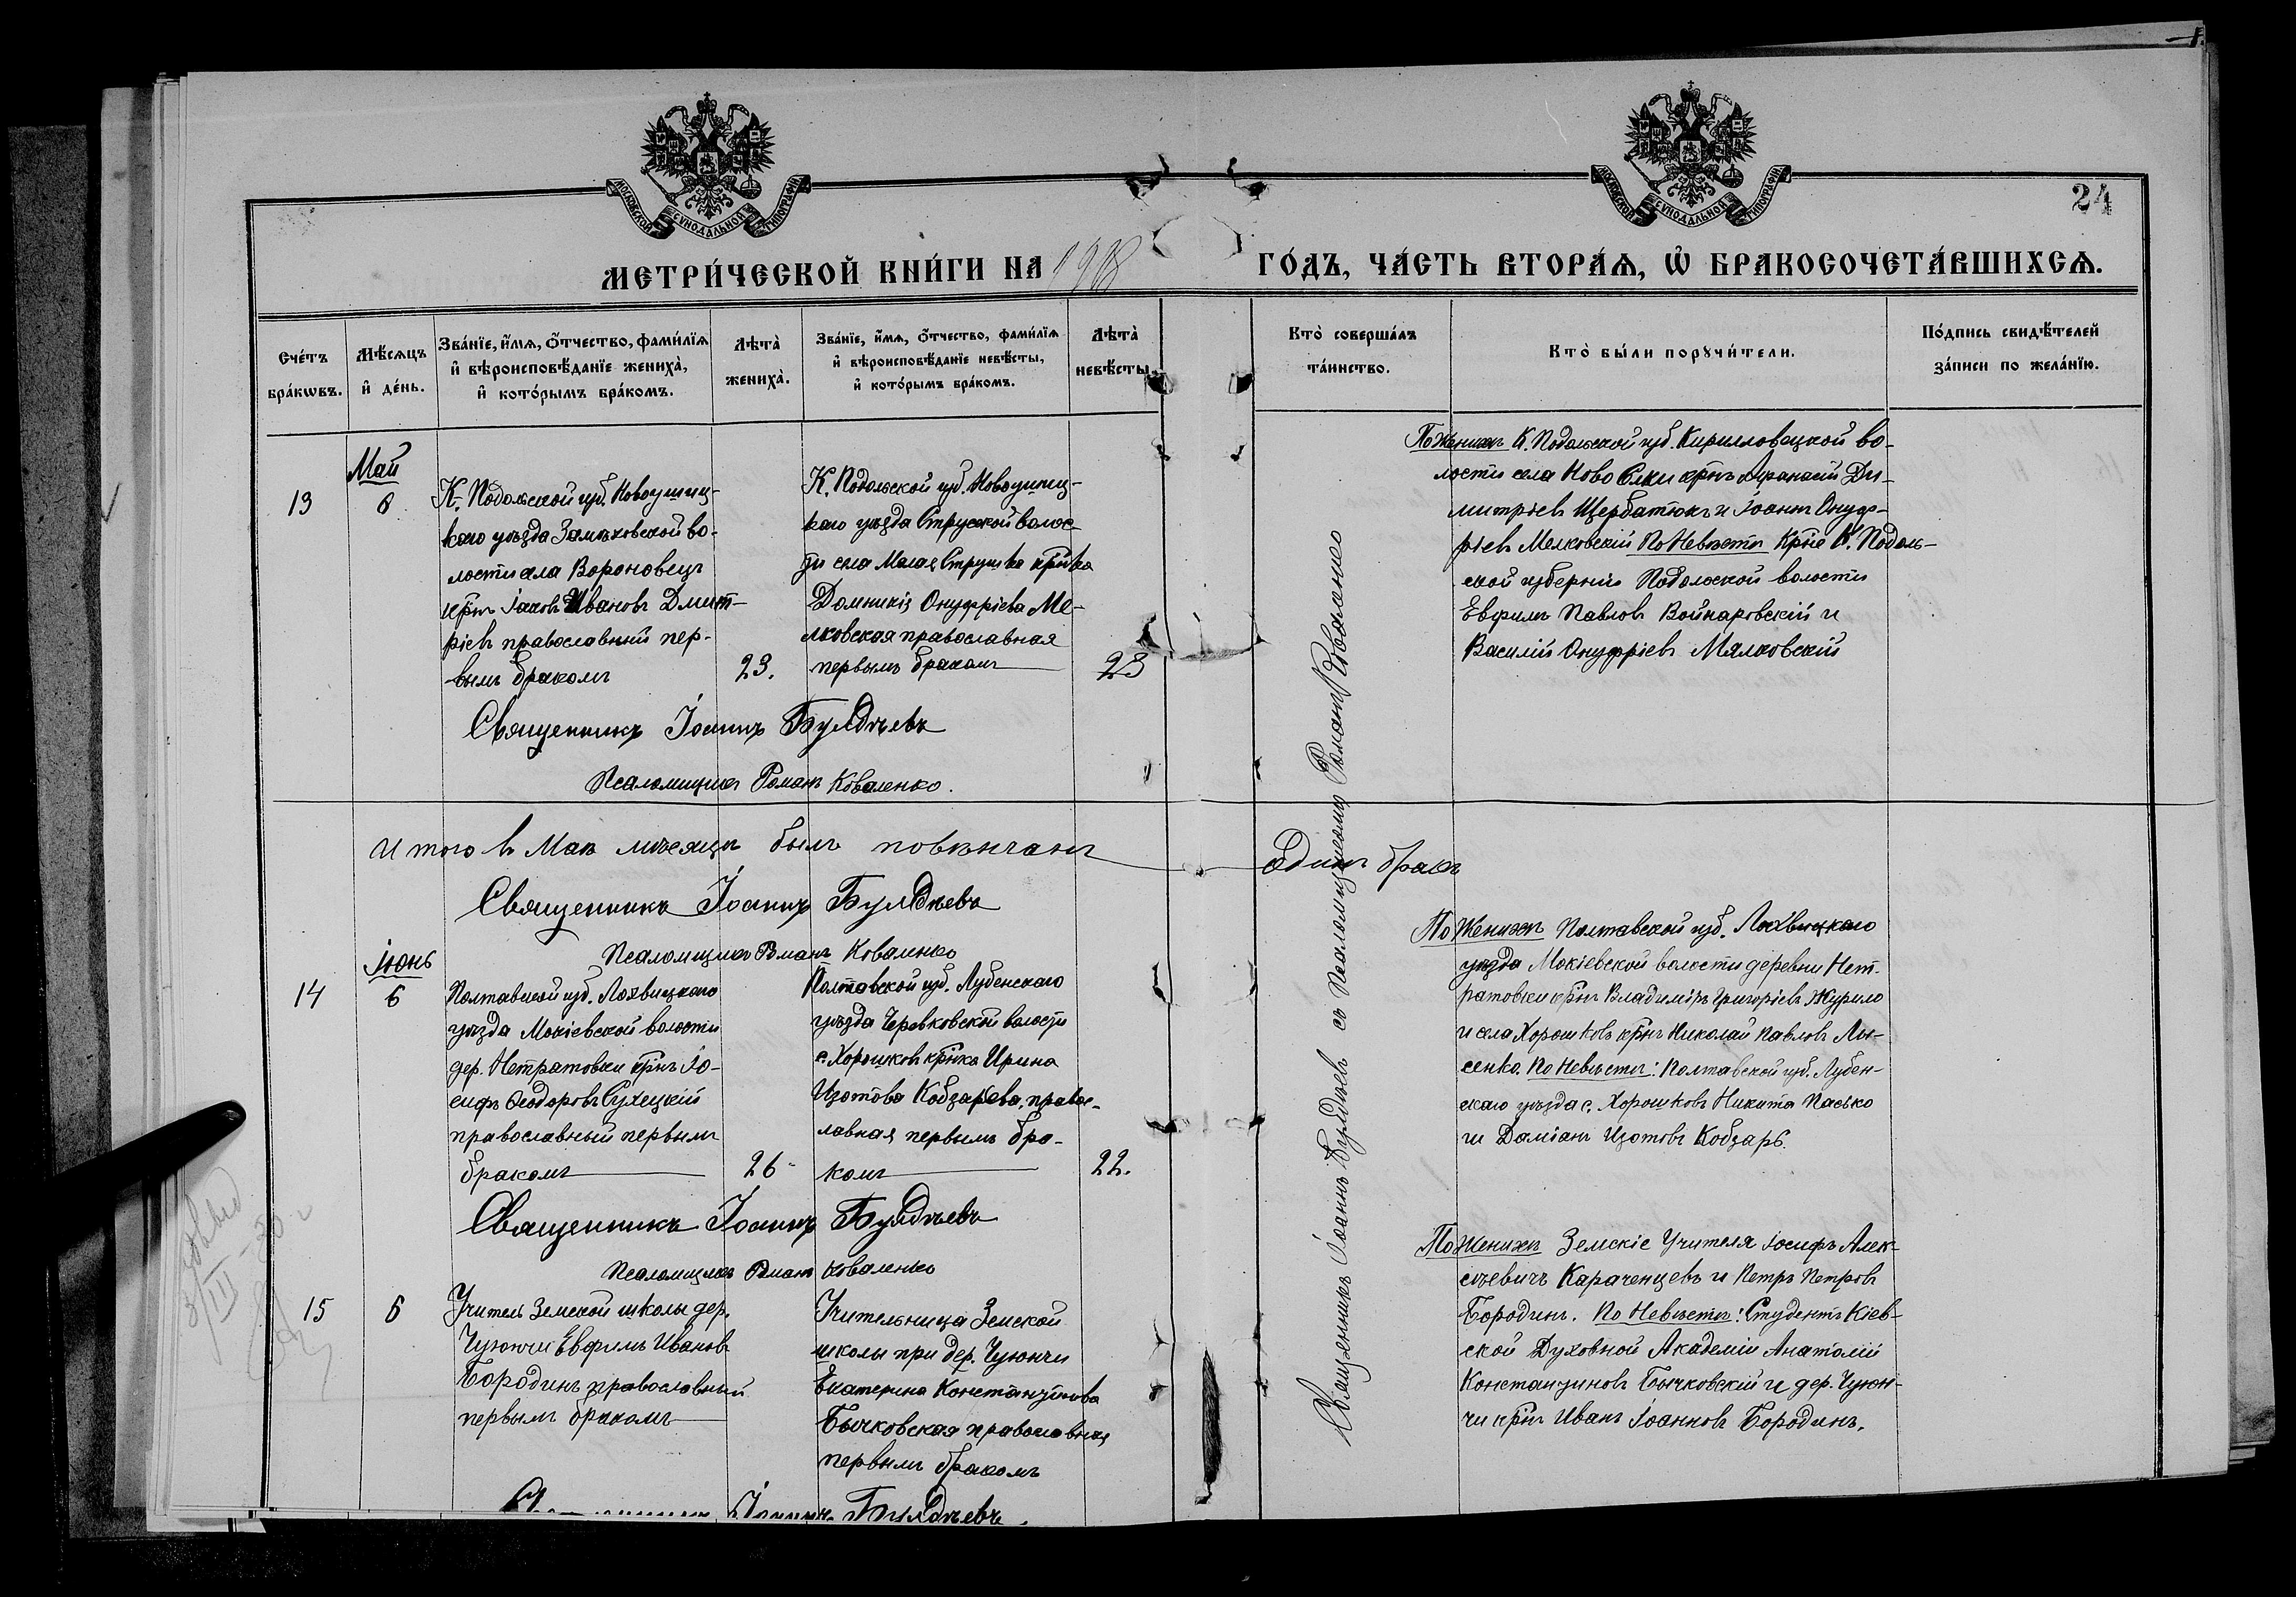 МОСКОВСКОЙ СУНОДАЛЬНОЙ ТИПОГРАФІИ
МОСКОВСКОЙ СУНОДАЛЬНОЙ ТИПОГРАФІИ
24
МЕТРИ́ЧЕСКОЙ КНИ́ГИ НА 1918 ГО́ДЪ, ЧА́СТЬ ВТОРА́Ѧ, Ѡ БРАКОСОЧЕТА́ВШИХСѦ.
Сче́тъ бра́кѡвъ.
Мѣ́сѧцъ и҆ де́нь.
Зва́нїе, и҆́мѧ, ѻ҆́тчество, фами́лїѧ и҆ вѣроисповѣ́данїе жениха̀, и҆ кото́рымъ бра́комъ.
Лѣта̀ жениха̀.
Зва́нїе, и҆́мѧ, ѻ҆́тчество, фами́лїѧ и҆ вѣроисповѣ́данїе невѣ́сты, и҆ кото́рымъ бра́комъ.
Лѣта̀ невѣ́сты.
Кто̀ соверша́лъ та́инство.
Кто̀ бы́ли порꙋчи́тели.
По́дпись свидѣ́телей за́писи по жела́нїю.
Май
13
8
К. Подольской губ. Новоушиц-
каго уѣзда Замѣховской во-
лости села Вороновец
крнъ Іаковъ Ивановъ Дмит-
ріевъ православный пер-
вымъ бракомъ
23.
К. Подольской губ. Новоушиц-
каго уѣзда Струской волос-
ти села Малая Стружка крнка
Домникія Онуфріева Ме-
лковская православная
первымъ бракомъ
23
По Женихѣ К. Подольской губ. Кирилловецкой во-
лости села Ново крнъ Афанасій Ди-
митріевъ Щербатюкъ и Іоаннъ Онуф-
ріевъ Мелковскій По Невѣстѣ Крне К. Подоль-
ской губерніи Подольской волости
Евфимъ Павловъ Войнаровскій и
Василій Онуфріевъ Мялковскій
Священникъ Іоаннъ Булдѣевъ
Псаломщикъ Романъ Коваленко.
Итого въ Маѣ мѣсяцѣ былъ повѣнчанъ один бракъ
Священникъ Іоаннъ Булдѣевъ
Псаломщикъ Романъ Коваленко
Іюнь
14
6
Полтавской губ. Лохвицкаго
уѣзда Мокіевской волости
дер. Нетратовки крнъ Іо-
сифъ Ѳеодоровъ Сухецкій
православный первымъ
бракомъ
26
Полтавской губ. Лубенскаго
уѣзда Черевковской волости
с. Хорошковъ крнка Ирина
Изотова Кобзарева, правос-
лавная первымъ бра-
комъ
22.
По Женихѣ Полтавской губ. Лохвицкаго
уѣзда Мокіевской волости деревни Нет-
ратовки крнъ Владиміръ Григоріевъ Журило
и села Хорошковъ крнъ Николай Павловъ Лы-
сенко. По Невѣстѣ: Полтавской губ. Лубен-
скаго уѣзда с. Хорошковъ Никита Пасько
и Даміанъ Изотовъ Кобзарь.
Священникъ Іоаннъ Булдѣевъ
Псаломщикъ Романъ Коваленко
15
6
Учитель Земской школы дер.
Чуюнчи Евфимъ Ивановъ
Бородинъ православный
первымъ бракомъ
Учительница Земской
школы при дер. Чуюнчи
Екатерина Константинова
Бычковская православная
первымъ бракомъ
По Женихѣ Земскіе Учителя Іосифъ Алек-
сѣевичъ Караченцевъ и Петръ Петровъ
Бородинъ. По Невѣстѣ: Студентъ Кіев-
ской Духовной Академіи Анатолій
Константиновъ Бычковскій и дер. Чуюн-
чи крнъ Иванъ Іоанновъ Бородинъ.
Священникъ Іоаннъ Булдѣевъ.
Священникъ Іоаннъ Булдѣевъ съ псаломщикомъ Романъ Коваленко